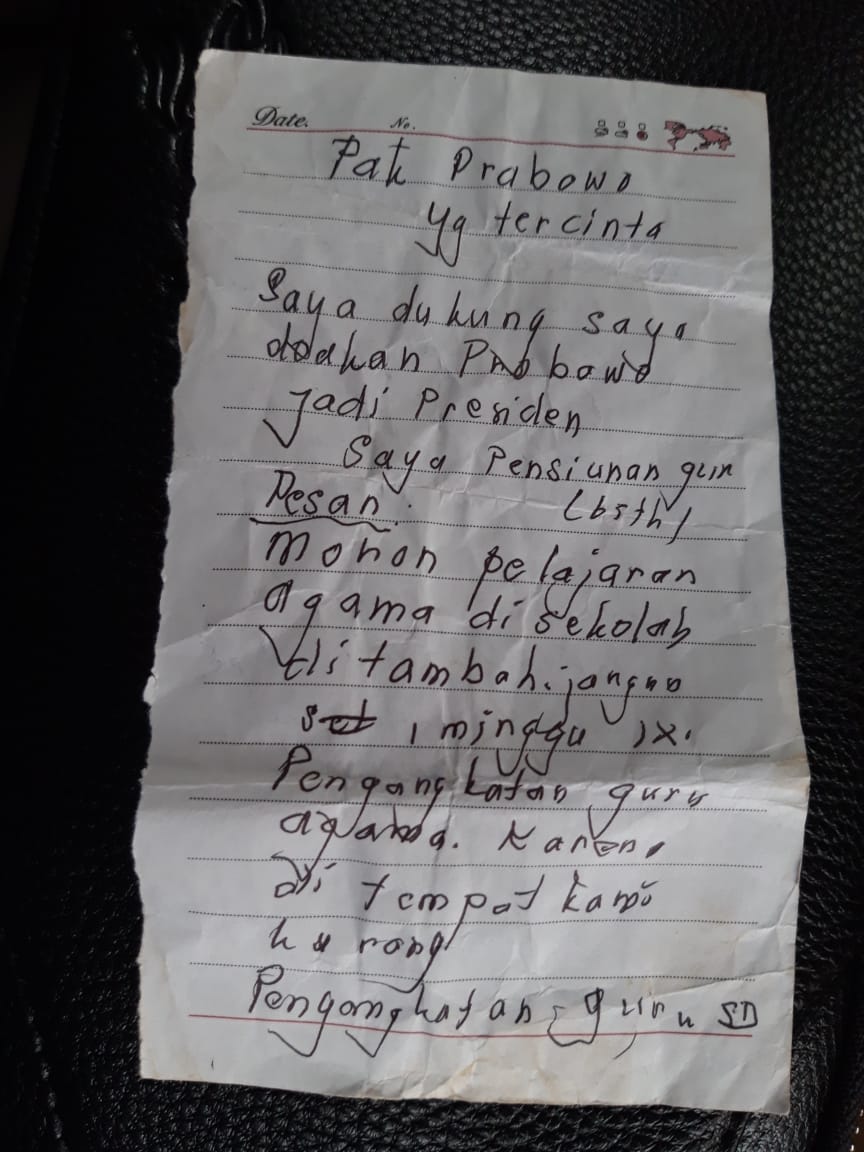 Date. No.
Pak Prabowo
yg tercinta
Saya dukung saya
doakan Prabowo
jadi Presiden
Saya Pensiunan guru
Pesan. (65th)
Mohon pelajaran
agama di sekolah
di tambah. jangan
1 minggu 1x.
Pengangkatan guru
agama. Karena
di tempat kami
kurang
Pengangkatan guru SD